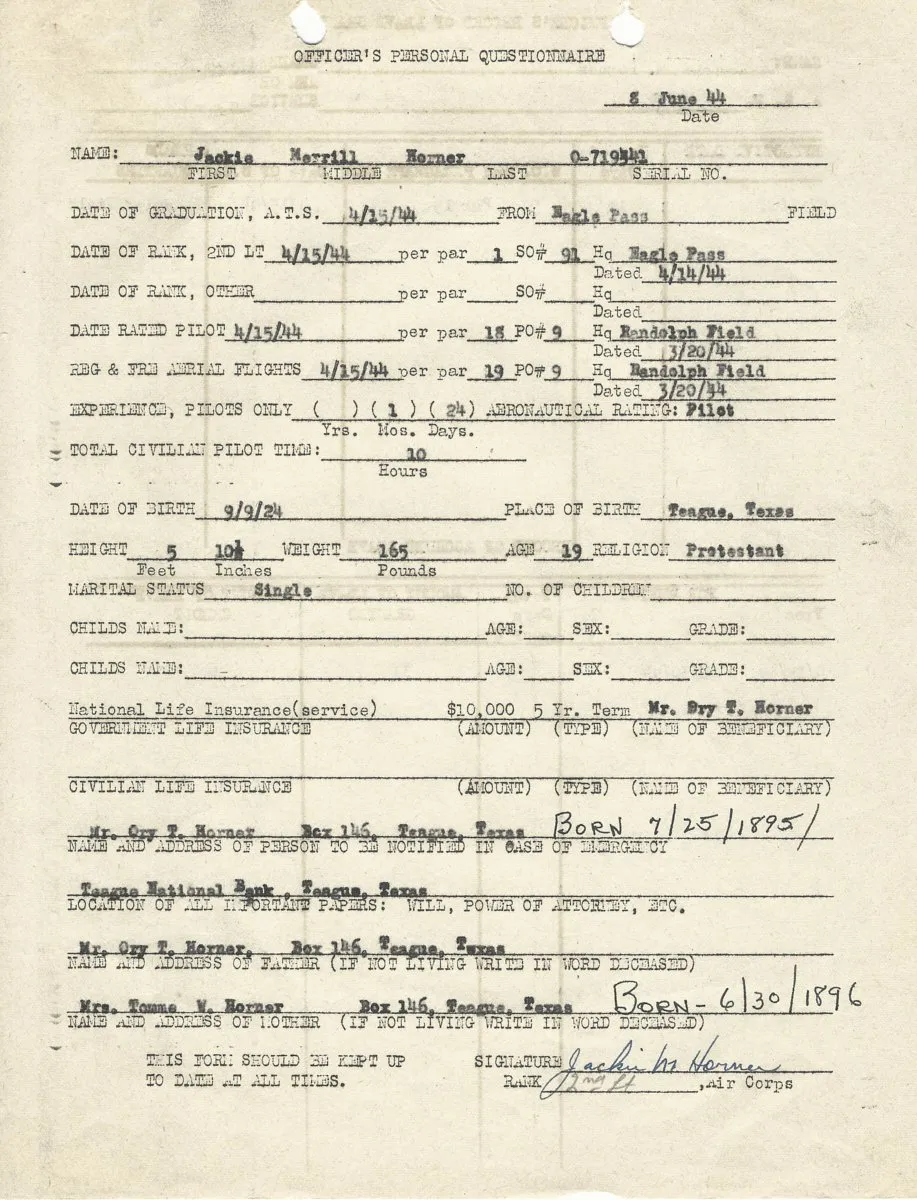 OFFICER'S PERSONAL QUESTIONNAIRE
8 June 44
Date
NAME: Jackie Merrill Horner O-719441
FIRST MIDDLE LAST SERIAL NO.
DATE OF GRADUATION, A.T.S. 4/15/44 FROM Eagle Pass FIELD
DATE OF RANK, 2ND LT 4/15/44 per par 1 SO# 91 Hq Eagle Pass
Dated 4/14/44
DATE OF RANK, OTHER per par SO# Hq
Dated
DATE RATED PILOT 4/15/44 per par 18 PO# 9 Hq Randolph Field
Dated 3/20/44
REG & FRE AERIAL FLIGHTS 4/15/44 per par 19 PO# 9 Hq Randolph Field
Dated 3/20/44
EXPERIENCE, PILOTS ONLY ( ) ( 1 ) ( 24) AERONAUTICAL RATING: Pilot
Yrs. Mos. Days.
TOTAL CIVILIAN PILOT TIME: 10
Hours
DATE OF BIRTH 9/9/24 PLACE OF BIRTH Teague, Texas
HEIGHT 5 10½ WEIGHT 165 AGE 19 RELIGION Protestant
Feet Inches Pounds
MARITAL STATUS Single NO. OF CHILDREN
CHILDS NAME: AGE: SEX: GRADE:
CHILDS NAME: AGE: SEX: GRADE:
National Life Insurance(service) $10,000 5 Yr. Term Mr. Ory T. Horner
GOVERNMENT LIFE INSURANCE (AMOUNT) (TYPE) (NAME OF BENEFICIARY)
CIVILIAN LIFE INSURANCE (AMOUNT) (TYPE) (NAME OF BENEFICIARY)
Mr. Ory T. Horner Box 146, Teague, Texas BORN 7/25/1895/
NAME AND ADDRESS OF PERSON TO BE NOTIFIED IN CASE OF EMERGENCY
Teague National Bank , Teague, Texas
LOCATION OF ALL IMPORTANT PAPERS: WILL, POWER OF ATTORNEY, ETC.
Mr. Ory T. Horner, Box 146, Teague, Texas
NAME AND ADDRESS OF FATHER (IF NOT LIVING WRITE IN WORD DECEASED)
Mrs. Tomme W. Horner Box 146, Teague, Texas BORN - 6/30/1896
NAME AND ADDRESS OF MOTHER (IF NOT LIVING WRITE IN WORD DECEASED)
THIS FORM SHOULD BE KEPT UP SIGNATURE Jackie M Horner
TO DATE AT ALL TIMES. RANK 2nd Lt ,Air Corps